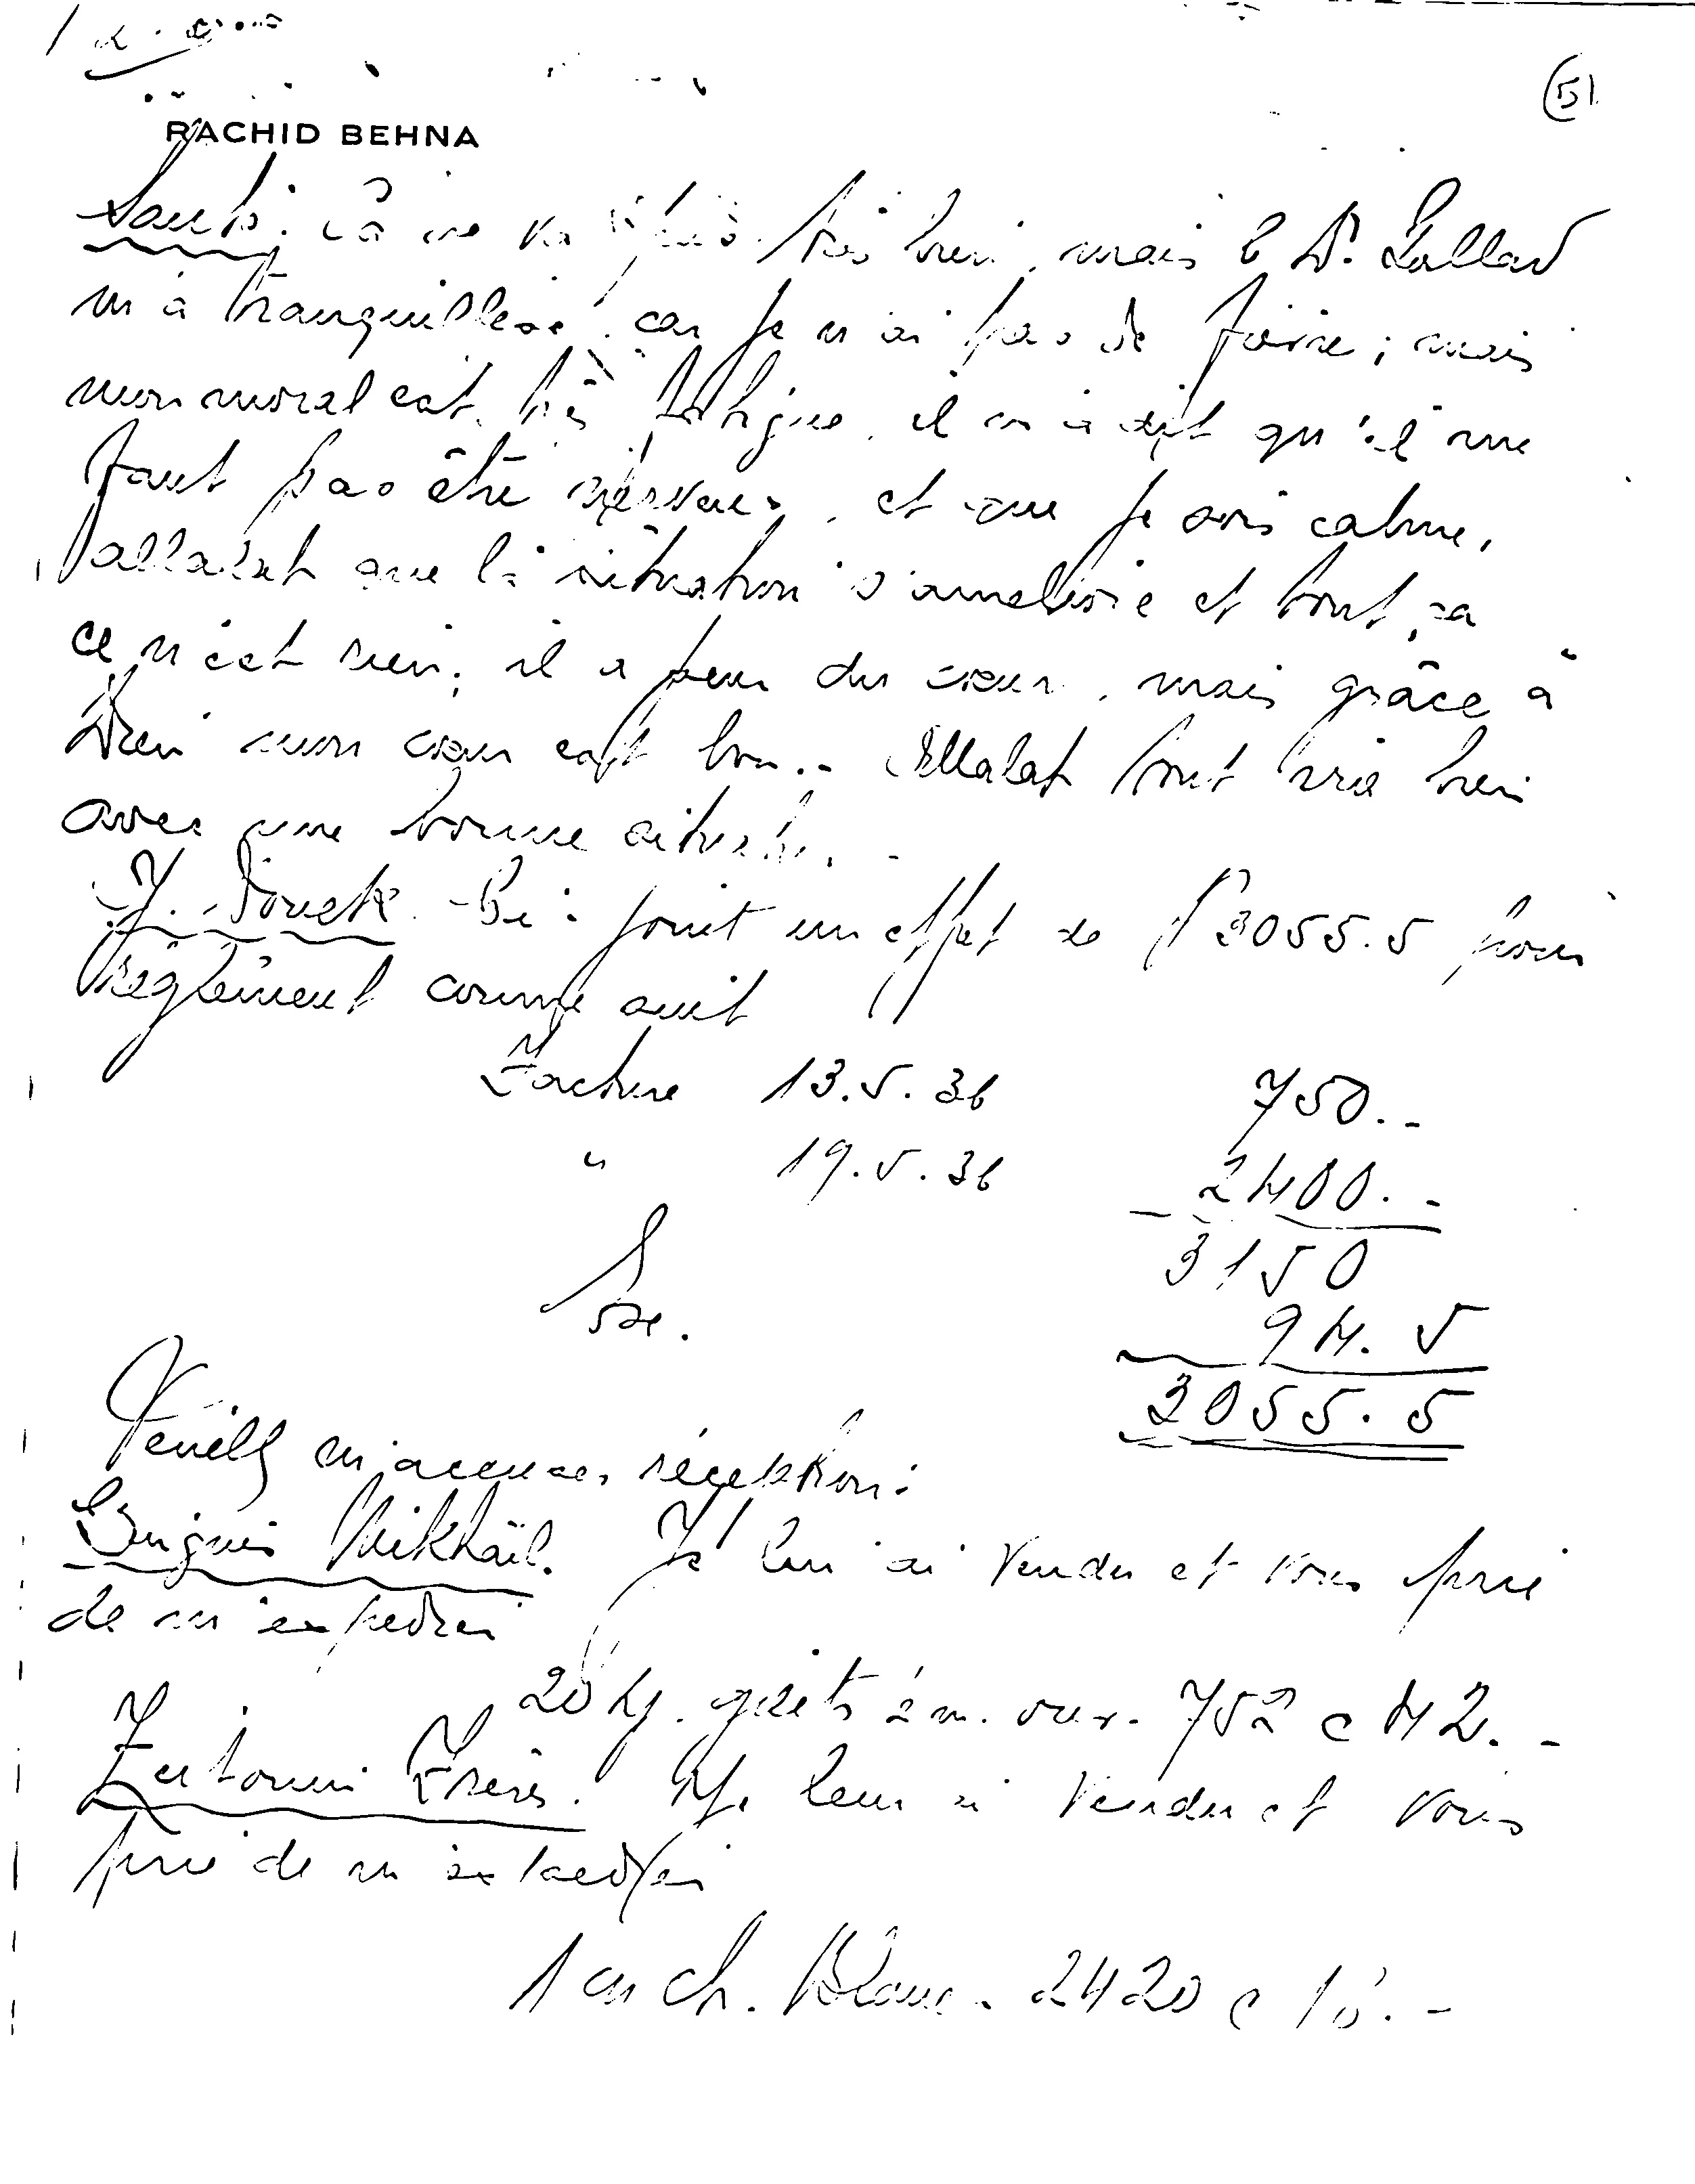 (5)
RACHID BEHNA
Santé. Cà ne va pas très bien, mais le Dr. Lallad
m'a tranquillisé, car je n'ai pas de foie; mais
mon moral est très fatigué, il m'a dit qu'il me
faut pas être nerveux, et que je sois calme,
allalah que la situation s'améliore et tout ça
ce n'est rien; il a peur du cœur, mais grâce à
Dieu mon cœur est bon.- Allalah tout ira bien
avec une bonne situat.
J. Douek. Ci-joint un effet de 3055.5 pour
règlement comme suit
Facture 13.5.36 750.-
" 19.5.36 2400.-
3150
94.5
3055.5
Veuillez m'accuser réception.
Mikhaïl. Je lui ai vendu et vous prie
de m'expédier
20 752 c 42.-
Zeitouni Frères. Je leur ai vendu et vous
prie de m'expédier
1 ch. Blanc. 2420 c